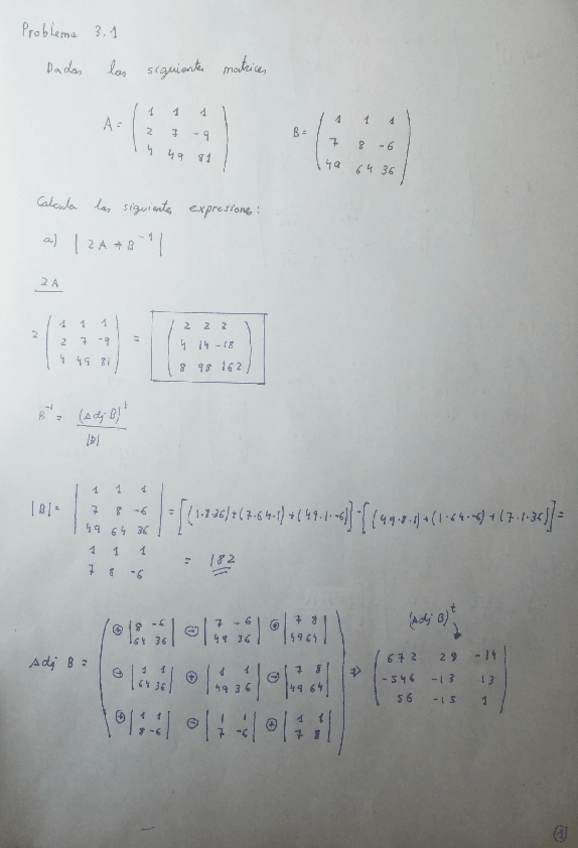 Problema 3.1
Dadas las siguientes matrices
A = ( 1 1 1 ; 2 7 -9 ; 4 49 81 ) B = ( 1 1 1 ; 7 8 -6 ; 49 64 36 )
Calcula las siguientes expresiones:
a) | 2A + B^-1 |
2A
2 ( 1 1 1 ; 2 7 -9 ; 4 49 81 ) = ( 2 2 2 ; 4 14 -18 ; 8 98 162 )
B^-1 = (Adj B)^t / |B|
|B| = | 1 1 1 ; 7 8 -6 ; 49 64 36 | = [(1·8·36)+(7·64·1)+(49·1·-6)]-[(49·8·1)+(1·64·-6)+(7·1·36)] =
1 1 1
7 8 -6 = 182
(Adj B)^t
Adj B = ( ⊕ | 8 -6 ; 64 36 | ⊖ | 7 -6 ; 49 36 | ⊕ | 7 8 ; 49 64 | ; ⊖ | 1 1 ; 64 36 | ⊕ | 1 1 ; 49 36 | ⊖ | 7 8 ; 49 64 | ; ⊕ | 1 1 ; 8 -6 | ⊖ | 1 1 ; 7 -6 | ⊕ | 1 1 ; 7 8 | ) ⇒ ( 672 28 -14 ; -546 -13 13 ; 56 -15 1 )
1